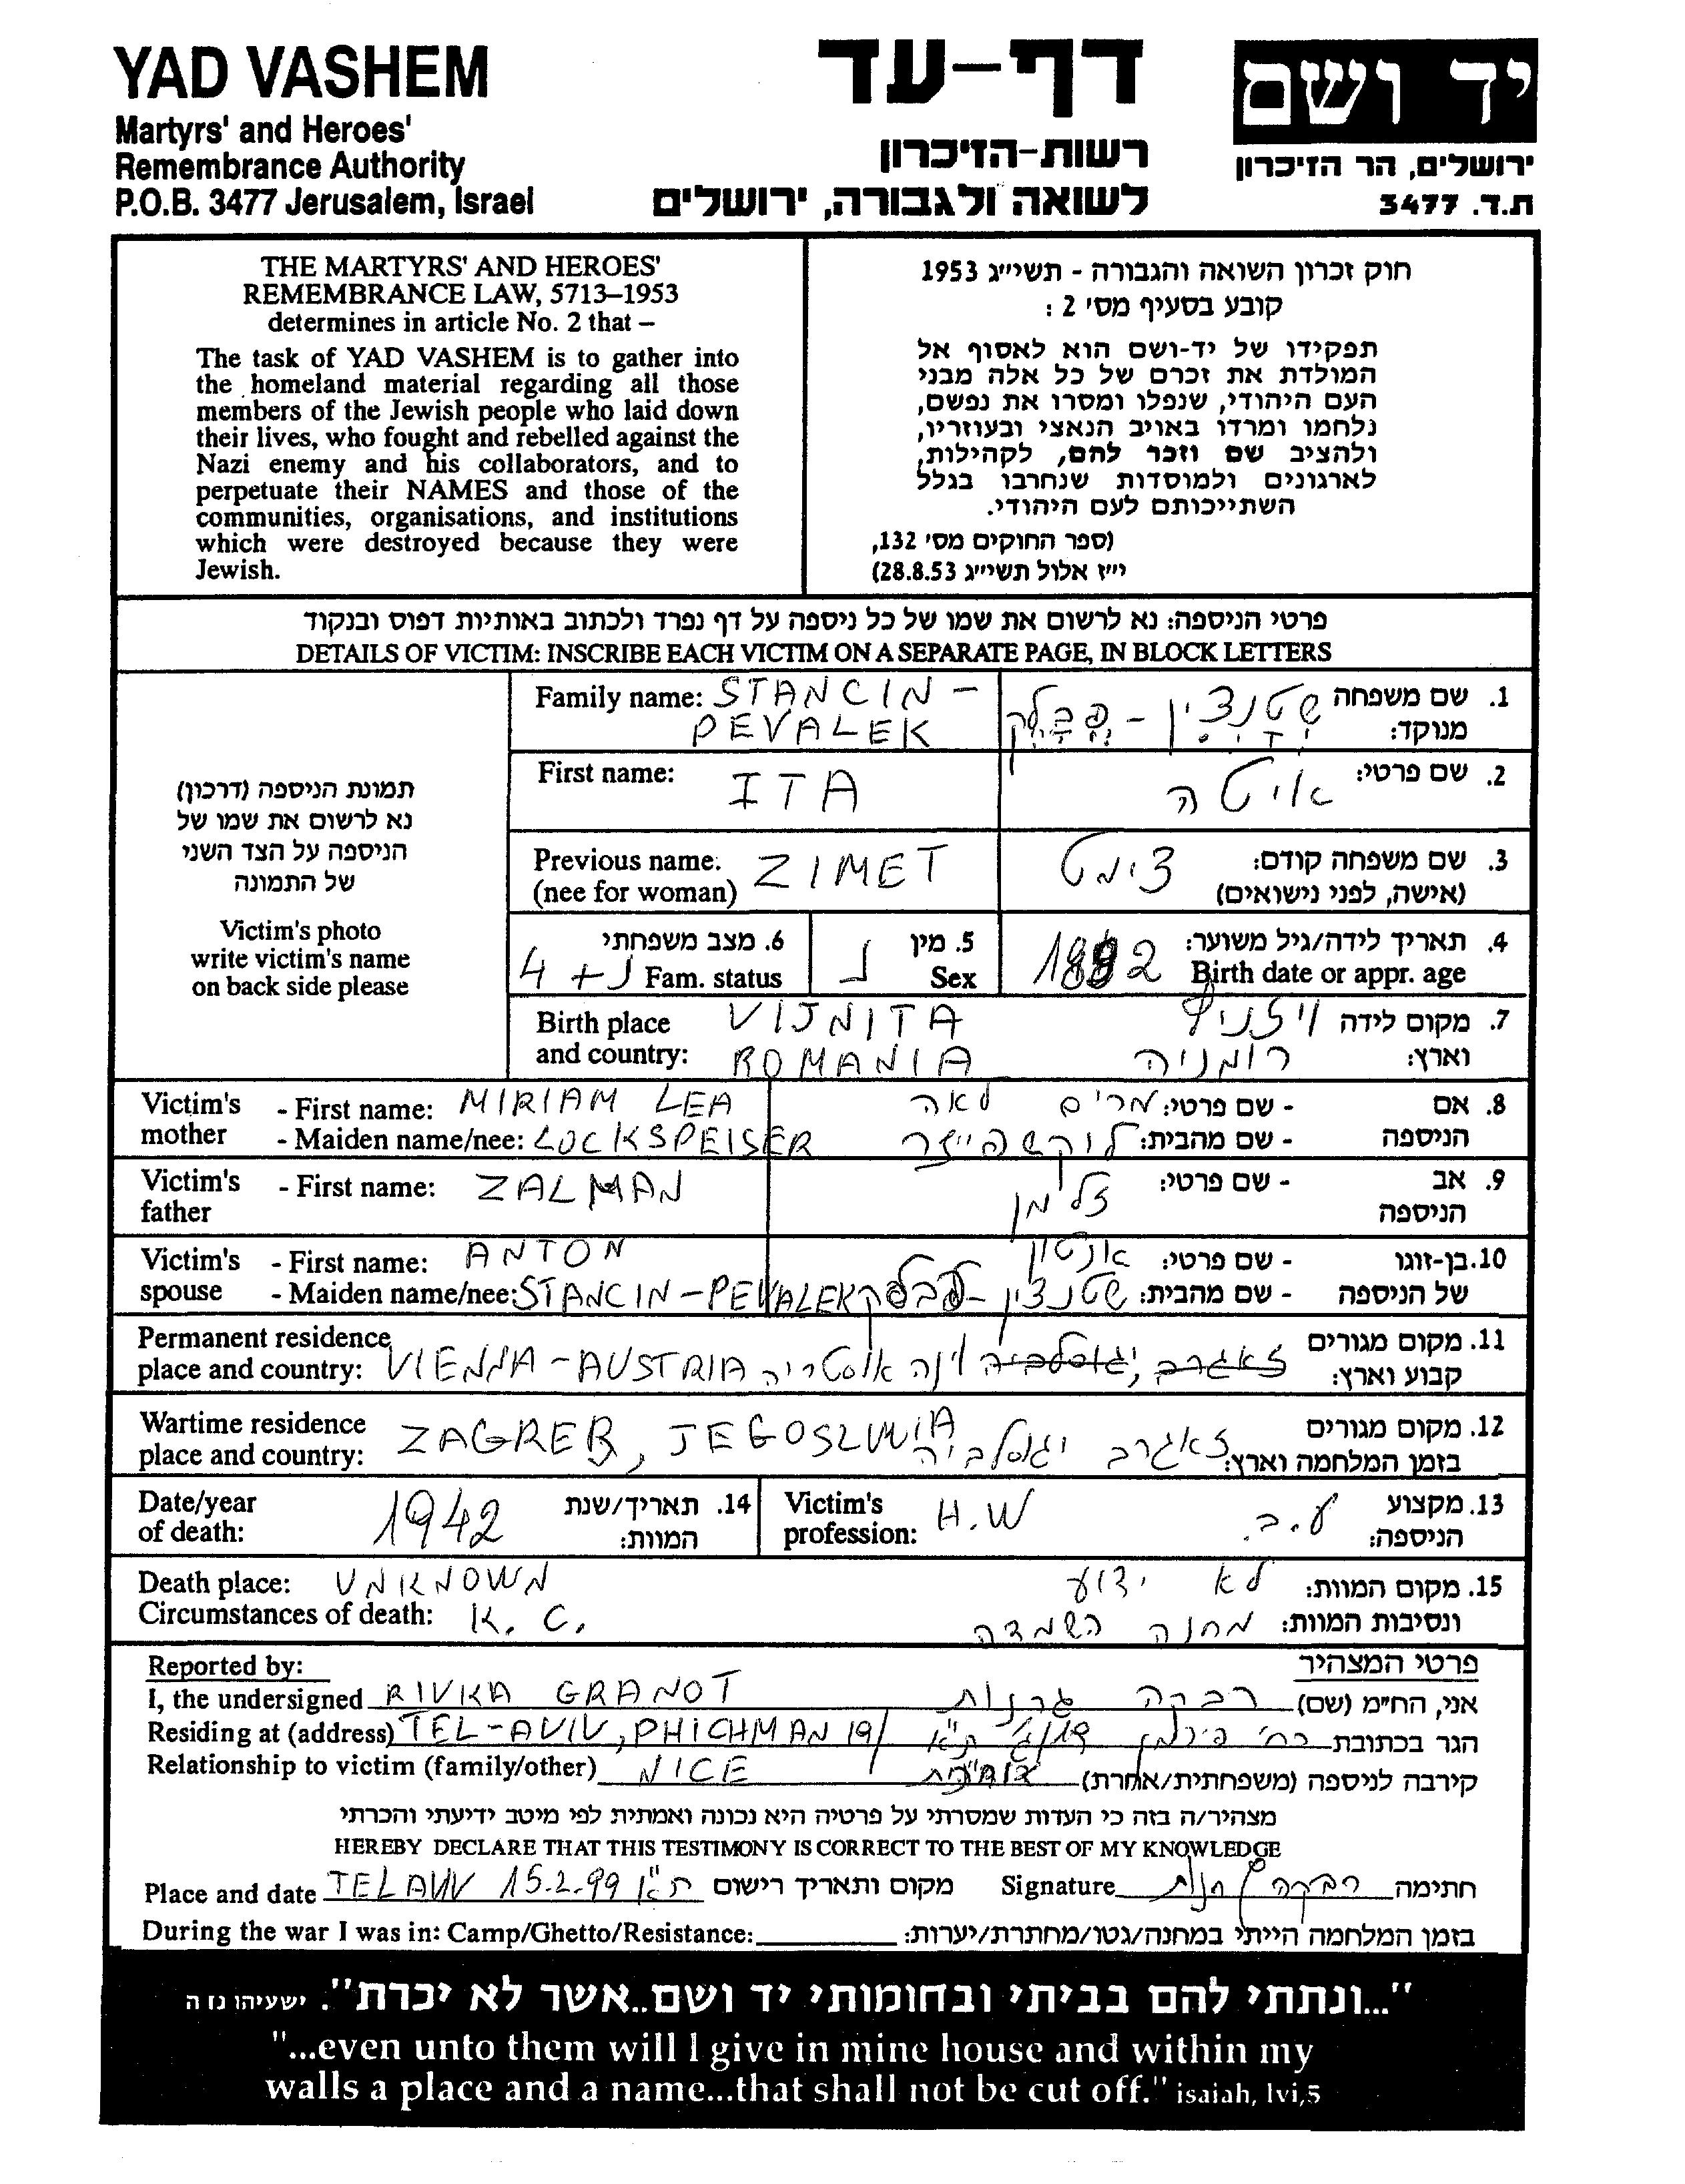 YAD VASHEM
Martyrs' and Heroes'
Remembrance Authority
P.O.B. 3477 Jerusalem, Israel
דף-עד
רשות-הזיכרון
לשואה ולגבורה, ירושלים
יד ושם
ירושלים, הר הזיכרון
ת.ד. 3477
THE MARTYRS' AND HEROES'
REMEMBRANCE LAW, 5713–1953
determines in article No. 2 that –
The task of YAD VASHEM is to gather into
the homeland material regarding all those
members of the Jewish people who laid down
their lives, who fought and rebelled against the
Nazi enemy and his collaborators, and to
perpetuate their NAMES and those of the
communities, organisations, and institutions
which were destroyed because they were
Jewish.
חוק זכרון השואה והגבורה - תשי״ג 1953
קובע בסעיף מס' 2 :
תפקידו של יד-ושם הוא לאסוף אל
המולדת את זכרם של כל אלה מבני
העם היהודי, שנפלו ומסרו את נפשם,
נלחמו ומרדו באויב הנאצי ובעוזריו,
ולהציב שם וזכר להם, לקהילות,
לארגונים ולמוסדות שנחרבו בגלל
השתייכותם לעם היהודי.
(ספר החוקים מס' 132,
י״ז אלול תשי״ג 28.8.53)
פרטי הניספה: נא לרשום את שמו של כל ניספה על דף נפרד ולכתוב באותיות דפוס ובנקוד
DETAILS OF VICTIM: INSCRIBE EACH VICTIM ON A SEPARATE PAGE, IN BLOCK LETTERS
תמונת הניספה (דרכון)
נא לרשום את שמו של
הניספה על הצד השני
של התמונה
Victim's photo
write victim's name
on back side please
Family name: STANCIN -
PEVALEK
1. שם משפחה שטנצין - פבלק
מנוקד:
First name: ITA
2. שם פרטי: איטה
Previous name. ZIMET
(nee for woman)
3. שם משפחה קודם: צימט
(אישה, לפני נישואים)
6. מצב משפחתי
Fam. status נ + 4
5. מין
Sex נ
4. תאריך לידה/גיל משוער:
Birth date or appr. age 1882
Birth place VIJNITA
and country: ROMANIA
7. מקום לידה ויזניץ
וארץ: רומניה
Victim's - First name: MIRIAM LEA
mother - Maiden name/nee: LOCKSPEISER
8. אם - שם פרטי: מרים לאה
הניספה - שם מהבית: לוקשפייזר
Victim's - First name: ZALMAN
father
9. אב - שם פרטי: זלמן
הניספה
Victim's - First name: ANTON
spouse - Maiden name/nee: STANCIN - PEVALEK
10. בן-זוגו - שם פרטי: אנטון
של הניספה - שם מהבית: שטנצין - פבלק
Permanent residence
place and country: VIENNA - AUSTRIA
11. מקום מגורים
קבוע וארץ: זאגרב, יגוסלביה וינה אוסטריה
Wartime residence
place and country: ZAGREB, JEGOSLWIA
12. מקום מגורים
בזמן המלחמה וארץ: זאגרב יגוסלביה
Date/year
of death: 1942
14. תאריך/שנת
המוות:
Victim's
profession: H.W
13. מקצוע
הניספה: ע.ב.
Death place: UNKNOWN
Circumstances of death: K. C.
15. מקום המוות: לא ידוע
ונסיבות המוות: מחנה השמדה
Reported by:
פרטי המצהיר
I, the undersigned RIVKA GRANOT
אני, הח״מ (שם) רבקה גרנות
Residing at (address) TEL-AVIV, PHICHMAN 19/
הגר בכתובת
Relationship to victim (family/other) NICE
קירבה לניספה (משפחתית/אחרת) אחיינית
מצהיר/ה בזה כי העדות שמסרתי על פרטיה היא נכונה ואמתית לפי מיטב ידיעתי והכרתי
HEREBY DECLARE THAT THIS TESTIMONY IS CORRECT TO THE BEST OF MY KNOWLEDGE
Place and date TELAVIV 15.2.99 ת"א מקום ותאריך רישום
Signature רבקה גרנות חתימה
During the war I was in: Camp/Ghetto/Resistance:
בזמן המלחמה הייתי במחנה/גטו/מחתרת/יערות:
"...ונתתי להם בביתי ובחומותי יד ושם..אשר לא יכרת". ישעיהו נו ה
"...even unto them will I give in mine house and within my
walls a place and a name...that shall not be cut off." isaiah, lvi,5